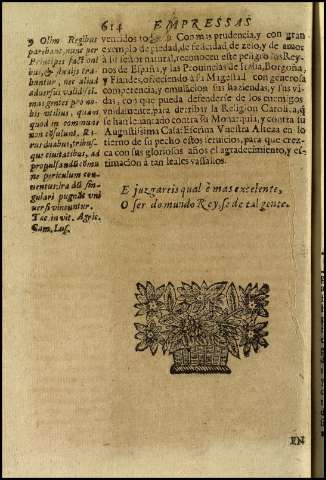 614 EMPRESSAS
9 Olim Regibus
parebant, nunc per
Principes factionibus
trahuntur,
nec aliud
adversus validissimas
gentes pro nobis
utilius, quam
quod in commune
non consulunt. Rarus
duabus, tribusque
civitatibus, ad
propulsandũ commune
periculum conventus:
ita dũ singuli
pugnãt universi
vincuntur.
Tac. in vit. Agric.
Cam. Lus.
vencidos todos. 9 Con mas prudencia, y con gran
exemplo de piedad, de felicidad, de zelo, y de amor
à su señor natural, reconocen este peligro los Reynos
de España, y las Provincias de Italia, Borgoña,
y Flandes, ofreciendo à su Magestad con generosa
competencia, y emulacion sus haziendas, y sus vidas,
con que pueda defenderse de los enemigos
unidamente, para derribar la Religion Catolica,
se han levantado contra su Monarquia, y contra su
Augustissima Casa: Escriva Vuestra Alteza en lo
tierno de su pecho estos servicios, para que crezca
con sus gloriosos años el agradecimiento, y estimacion
à tan leales vassallos.
E juzgareis qual è mas excelente,
O ser do mundo Rey, se de tal gente.
IN